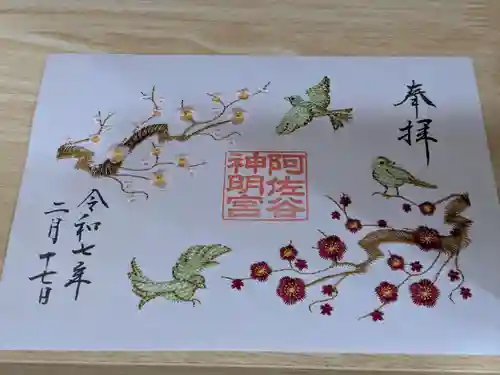 奉拝
阿佐谷
神明宮
令和七年
二月十七日